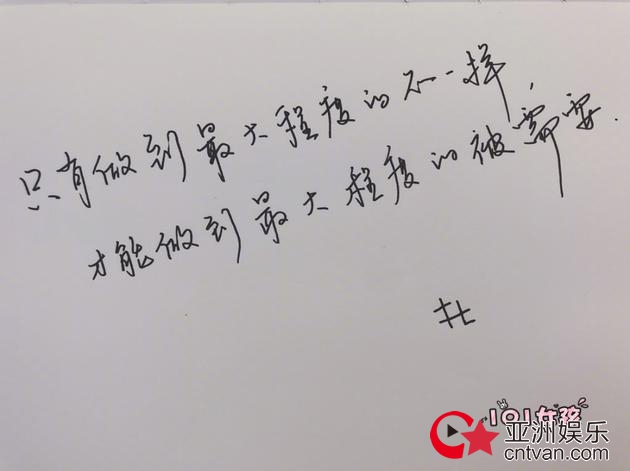 只有做到最大程度的不一样,
才能做到最大程度的被需要.
101女孩
亚洲娱乐
cntvan.com